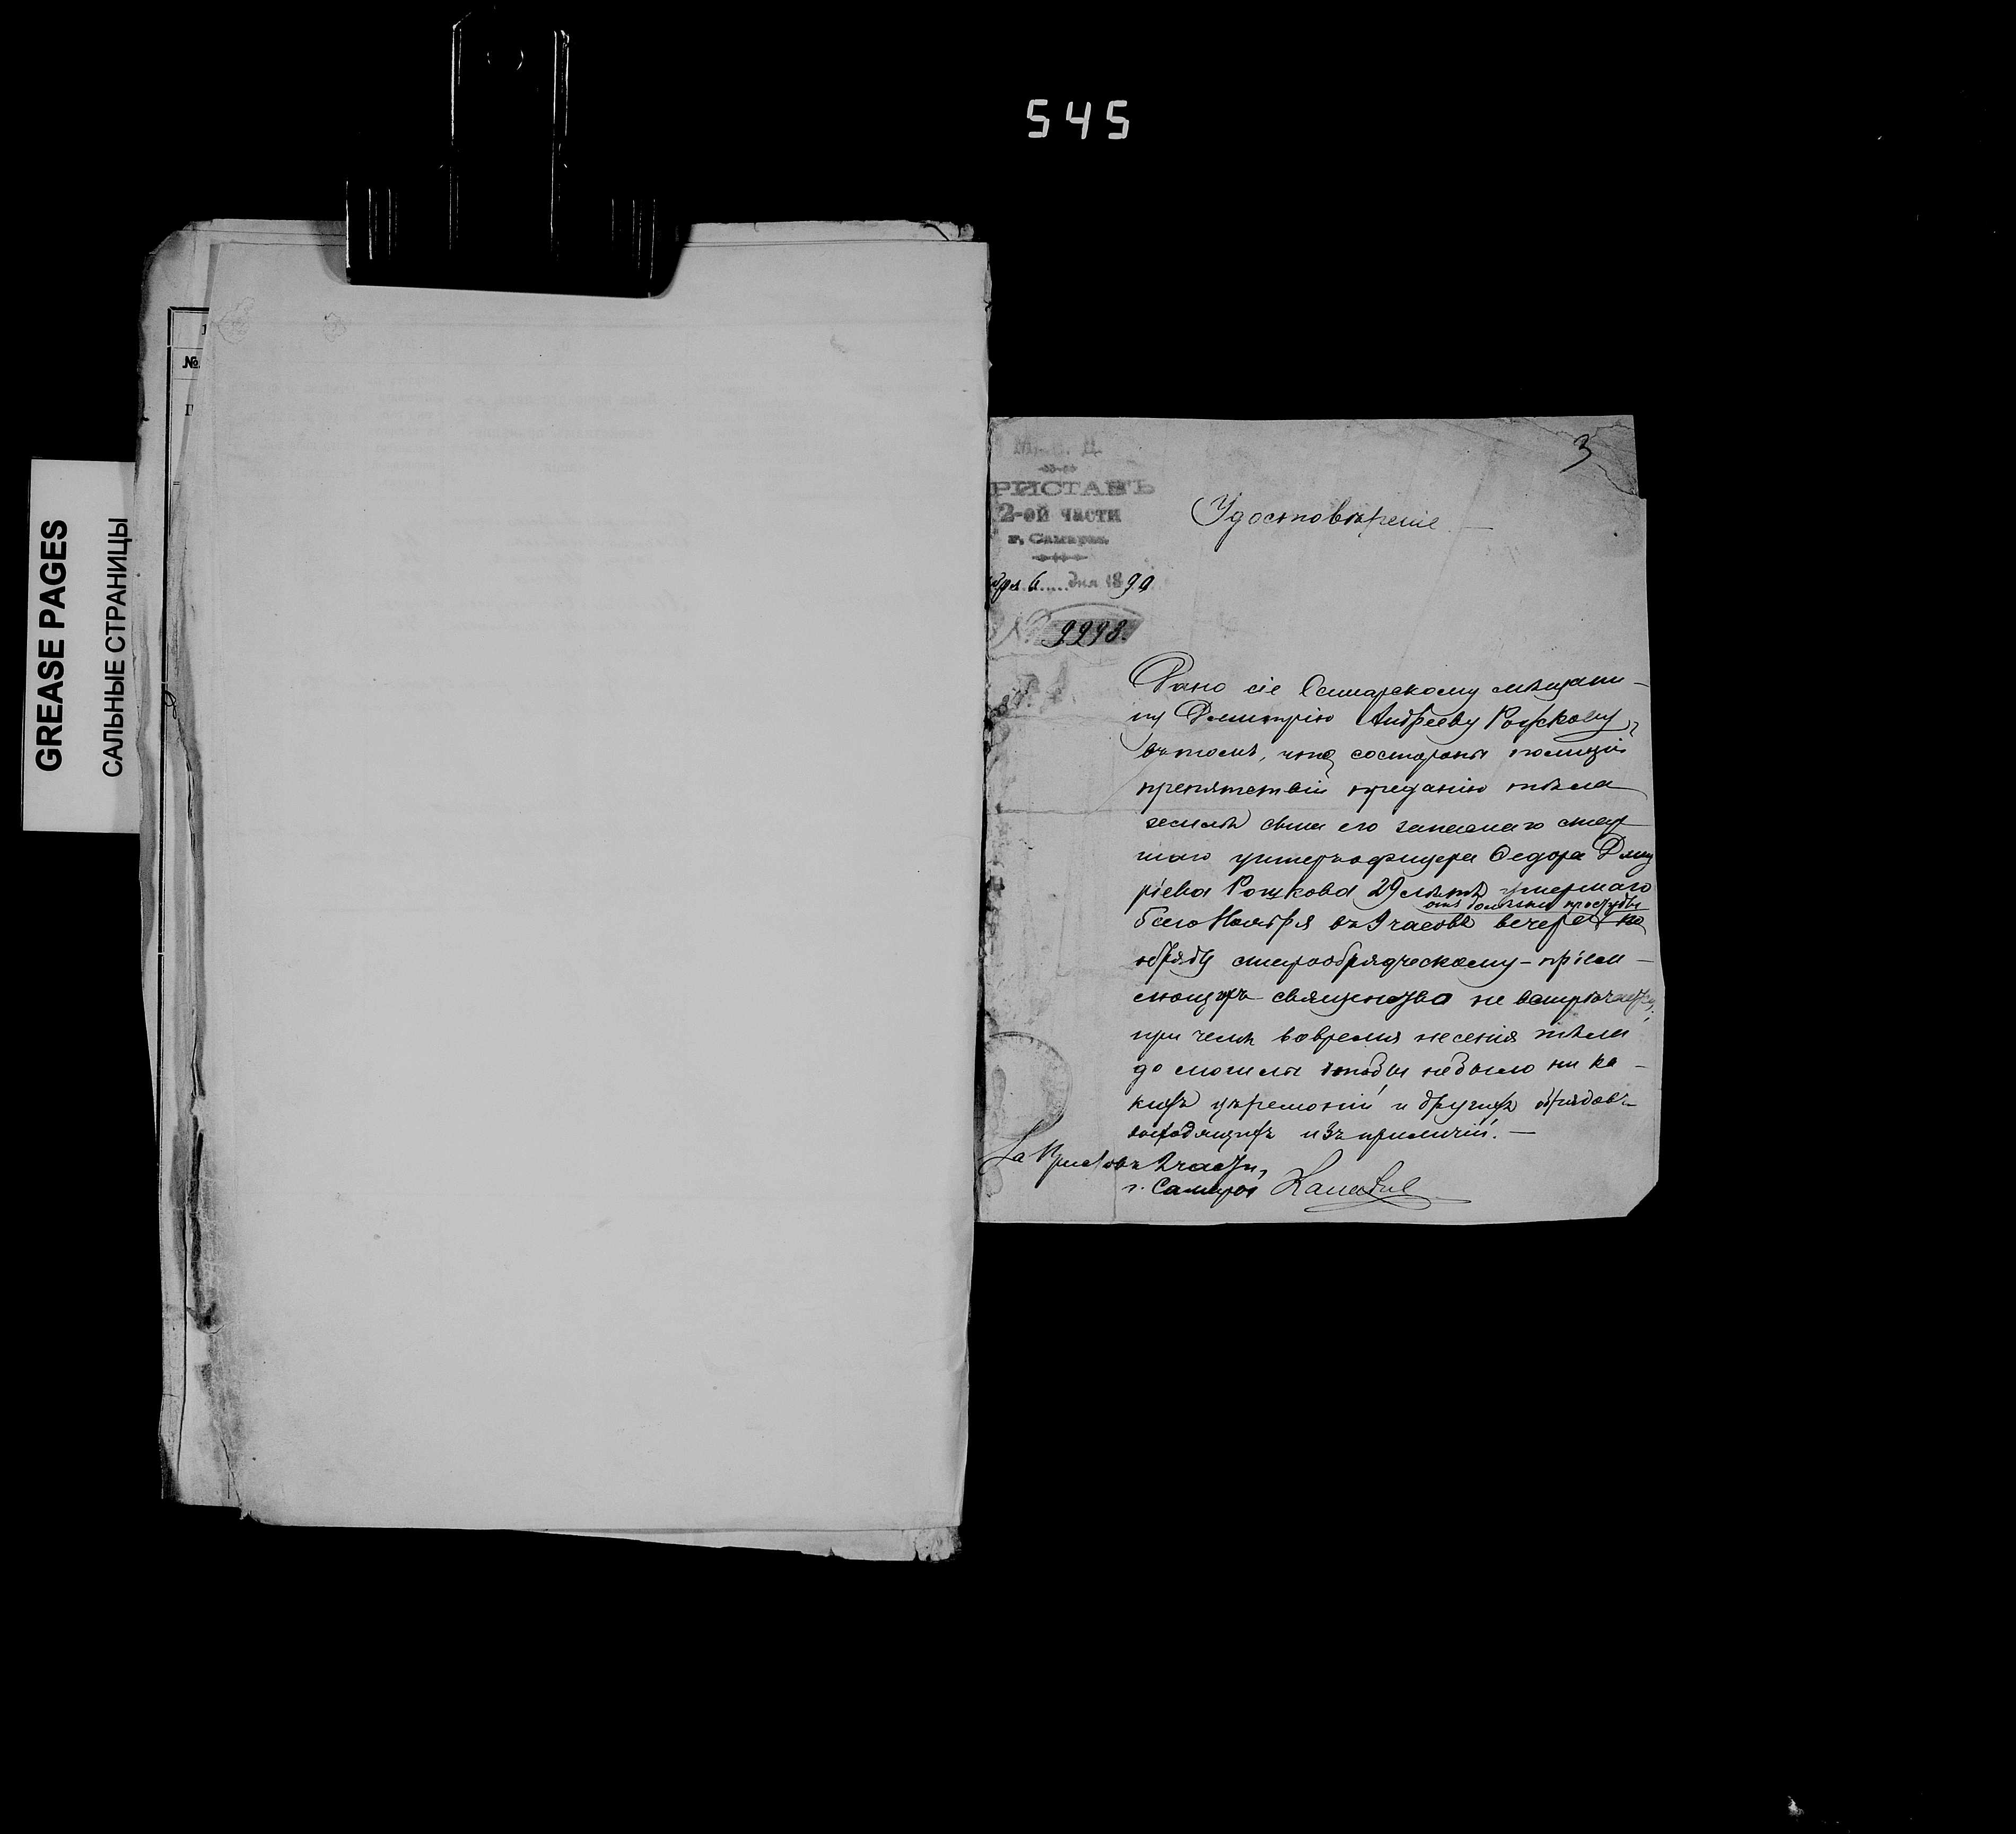 545
GREASE PAGES
САЛЬНЫЕ СТРАНИЦЫ
№
3
М. В. Д.
РИСТАВЪ
2-ой части
г. Самары.
бря 6 дня 1890
№ 9998.
Удостовѣреніе
Дано сіе Самарскому мѣщани-
ну Дмитрію Андрееву Рожкову,
въ томъ, что состороны полиціи
препятствій преданію тѣла
землѣ сына его запаснаго стар
шаго унтеръ офицера Федора Дмит
ріева Рожкова 29 лѣтъ умершаго
отъ болѣзни простуды
6 сего Ноября въ 9 часовъ вечера по
обряду старообрядческому - пріем-
лющихъ священства не встрѣчается,
при чемъ вовремя несенія тѣла
до могилы чтобы небыло ни ка-
кихъ церемоній и другихъ обрядовъ
выходящихъ изъ приличій. -
За Пристава 2 части,
г. Самары